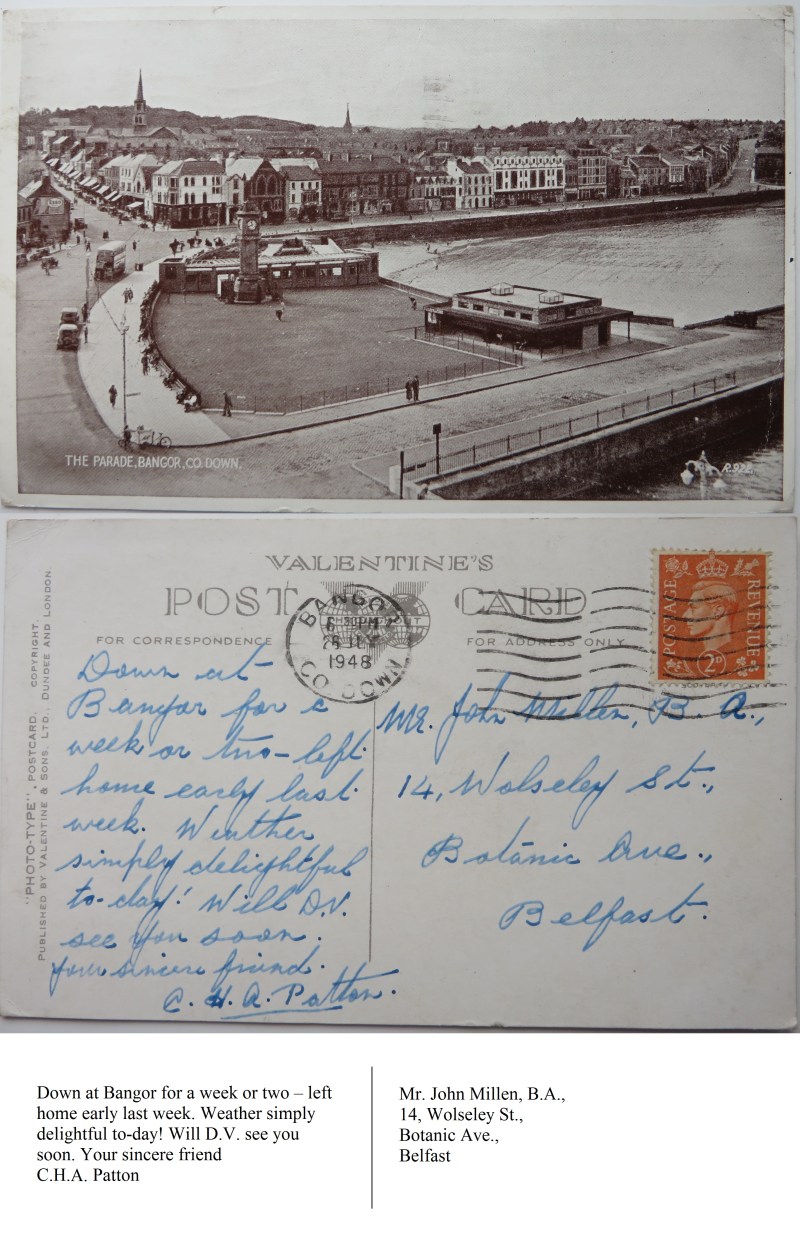 THE PARADE, BANGOR, CO. DOWN.
R.922.
VALENTINE'S
POST CARD
FOR CORRESPONDENCE
FOR ADDRESS ONLY
"PHOTO-TYPE", POSTCARD. COPYRIGHT.
PUBLISHED BY VALENTINE & SONS, LTD., DUNDEE AND LONDON.
BANGOR
1948
CO. DOWN
POSTAGE
REVENUE
2D
Down at
Bangor for a
week or two – left
home early last
week. Weather
simply delightful
to-day! Will D.V.
see you soon.
Your sincere friend.
C. H. A. Patton.
Mr. John Millen, B. A.,
14, Wolseley St.,
Botanic Ave.,
Belfast.
Down at Bangor for a week or two – left
home early last week. Weather simply
delightful to-day! Will D.V. see you
soon. Your sincere friend
C.H.A. Patton
Mr. John Millen, B.A.,
14, Wolseley St.,
Botanic Ave.,
Belfast